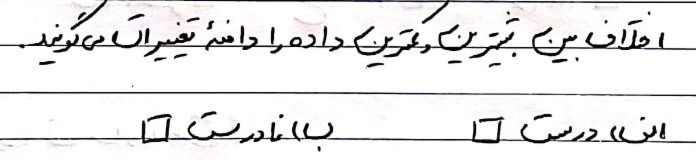 اختلاف بین بیشترین و کمترین داده را دامنهٔ تغییرات می‌گویند.
الف) درست □ ب) نادرست □